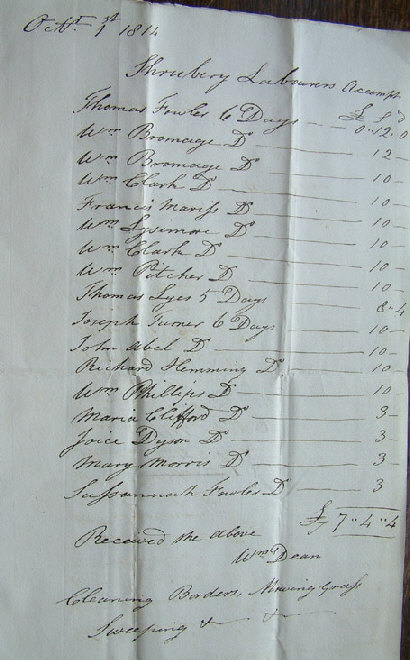 Octr. 1st 1814
Shrubery Labourers Accompt
£ s d
Thomas Fowler 6 Days — 0.12.0
Wm Bromage Do — 12 -
Wm Bromage Do — 10 -
Wm Clark Do — 10 -
Francis Do — 10 -
Wm Do — 10 -
Wm Clark Do — 10 -
Wm Potcher Do — 10 -
Thomas Lyes 5 Days 8-4
Joseph Turner 6 Days — 10 -
John Abel Do — 10 -
Richard Hemming Do — 10
Wm Phillips Do — 10
Maria Clifford Do — 3 -
Joice Dyson Do — 3 -
Mary Morris Do — 3 -
Sussannah Fowler Do — 3
£7"4"4
Received the above
Wm Dean
Cleaning Borders, Mowing Grass
Sweeping &c —